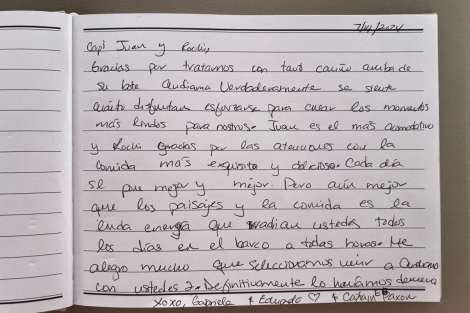 7/14/2024
Capi Juan y Rochi,
Gracias por tratarnos con tanto cariño arriba de
su bote Audiama Verdaderamente se siente
cuánto disfrutan esforzarse para crear los momentos
más lindos para nostros. Juan es el más acomodativo
y Rochi gracias por las atenciones con la
comida más exquisita y deliciosa. Cada día
se pone mejor y mejor. Pero aún mejor
que los paisajes y la comida es la
linda energía que irradian ustedes todos
los días en el barco a todas horas. Me
alegro mucho que seleccionamos venir a
con ustedes 2. Definitivamente lo haríamos denuevo
Xoxo, Gabriela + Eduardo ♡ + Captain Paxon